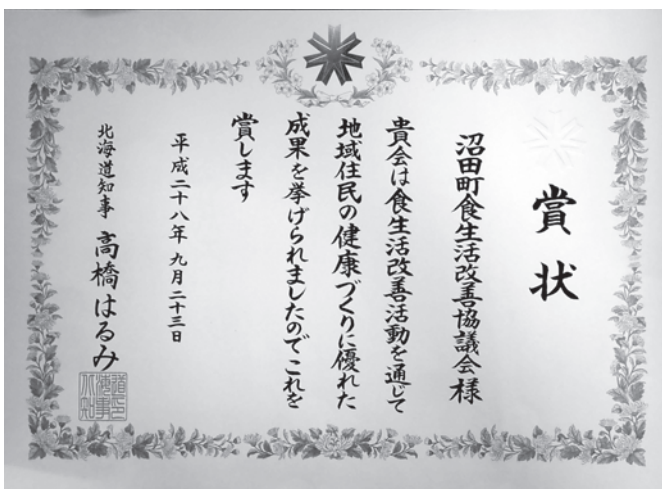 賞状
沼田町食生活改善協議会様
貴会は食生活改善活動を通じて
地域住民の健康づくりに優れた
成果を挙げられましたのでこれを
賞します
平成二十八年九月二十三日
北海道知事 高橋はるみ